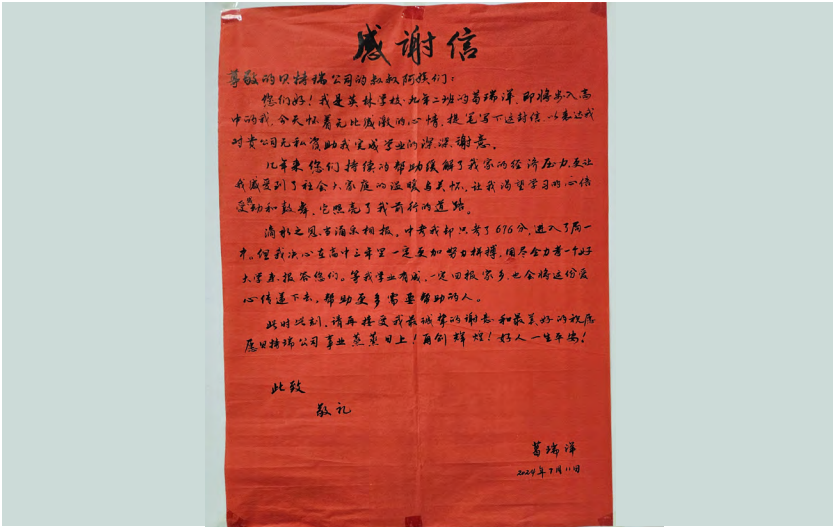 感谢信
尊敬的贝特瑞公司的叔叔阿姨们：
您们好！我是英林学校九年二班的葛瑞洋，即将步入高
中的我，今天怀着无比感激的心情，提笔写下这封信，以表达我
对贵公司无私资助我完成学业的深深谢意。
几年来您们持续的帮助缓解了我家的经济压力，更让
我感受到了社会大家庭的温暖与关怀，让我渴望学习的心倍
受感动和鼓舞，它照亮了我前行的道路。
滴水之恩当涌泉相报。中考我却只考了676分，进入了局一
中。但我决心在高中三年里一定更加努力拼搏，用尽全力考一个好
大学来报答您们。等我学业有成，一定回报家乡，也会将这份爱
心传递下去，帮助更多需要帮助的人。
此时此刻，请再接受我最诚挚的谢意和最美好的祝愿
愿贝特瑞公司事业蒸蒸日上！再创辉煌！好人一生平安！
此致
敬礼
葛瑞洋
2024年7月11日